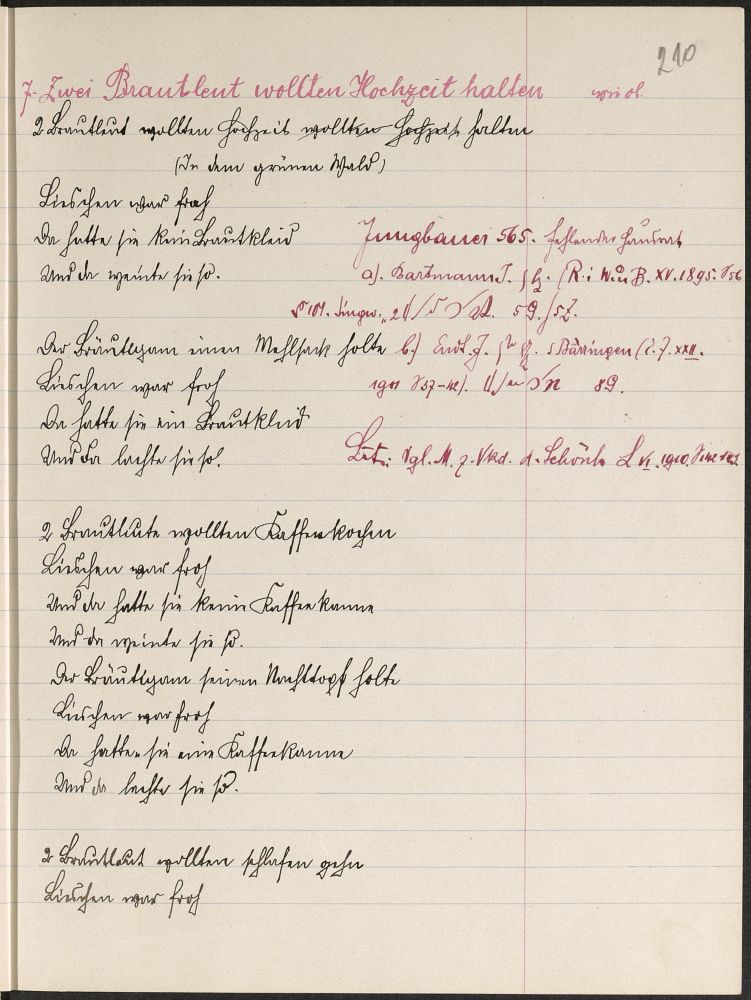 210
7. Zwei Brautleut wollten Hochzeit halten wie ob.
2 Brautleut wollten Hochzeit wollten Hochzeit halten
(In dem grünen Wald)
Lieschen war froh
Da hatte sie kein Brautkleid
Und da weinte sie so.
Jungbauer 565. Fehlender Hausrat
a). Bartmann J. (R. i W. u B. XV. 1895. S 56
b.) S Bärringen
Der Bräutigam einen Mehlsack holte
Lieschen war froh
1911 S 37-42). 89.
Da hatte sie ein Brautkleid
Und da lachte sie so!
Lit: Vgl. M. z. Vkd. d. Schönh. L VI. 1910.
2 Brautleute wollten Kaffee kochen
Lieschen war froh
Und da hatte sie keine Kaffeekanne
Und da weinte sie so.
Der Bräutigam seinen Nachttopf holte
Lieschen war froh
Da hatte sie eine Kaffeekanne
Und da lachte sie so.
2 Brautleut wollten schlafen gehn
Lieschen war froh